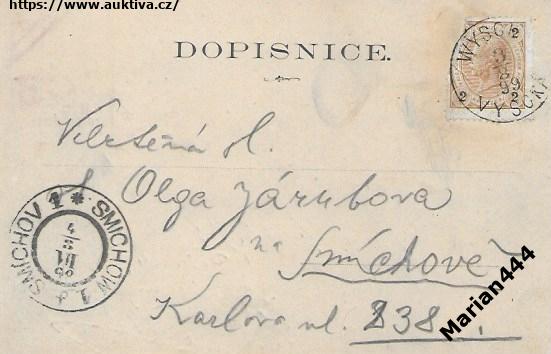 https://www.auktiva.cz/
DOPISNICE.
WYSO
VYSOKÁ
2
2
2
3
99
Velctěná sl.
Olga Zárubova
na
Smíchově
Karlova ul. 238.
SMÍCHOV 1 * SMICHOW 1
4/8
VII
99
Marian444